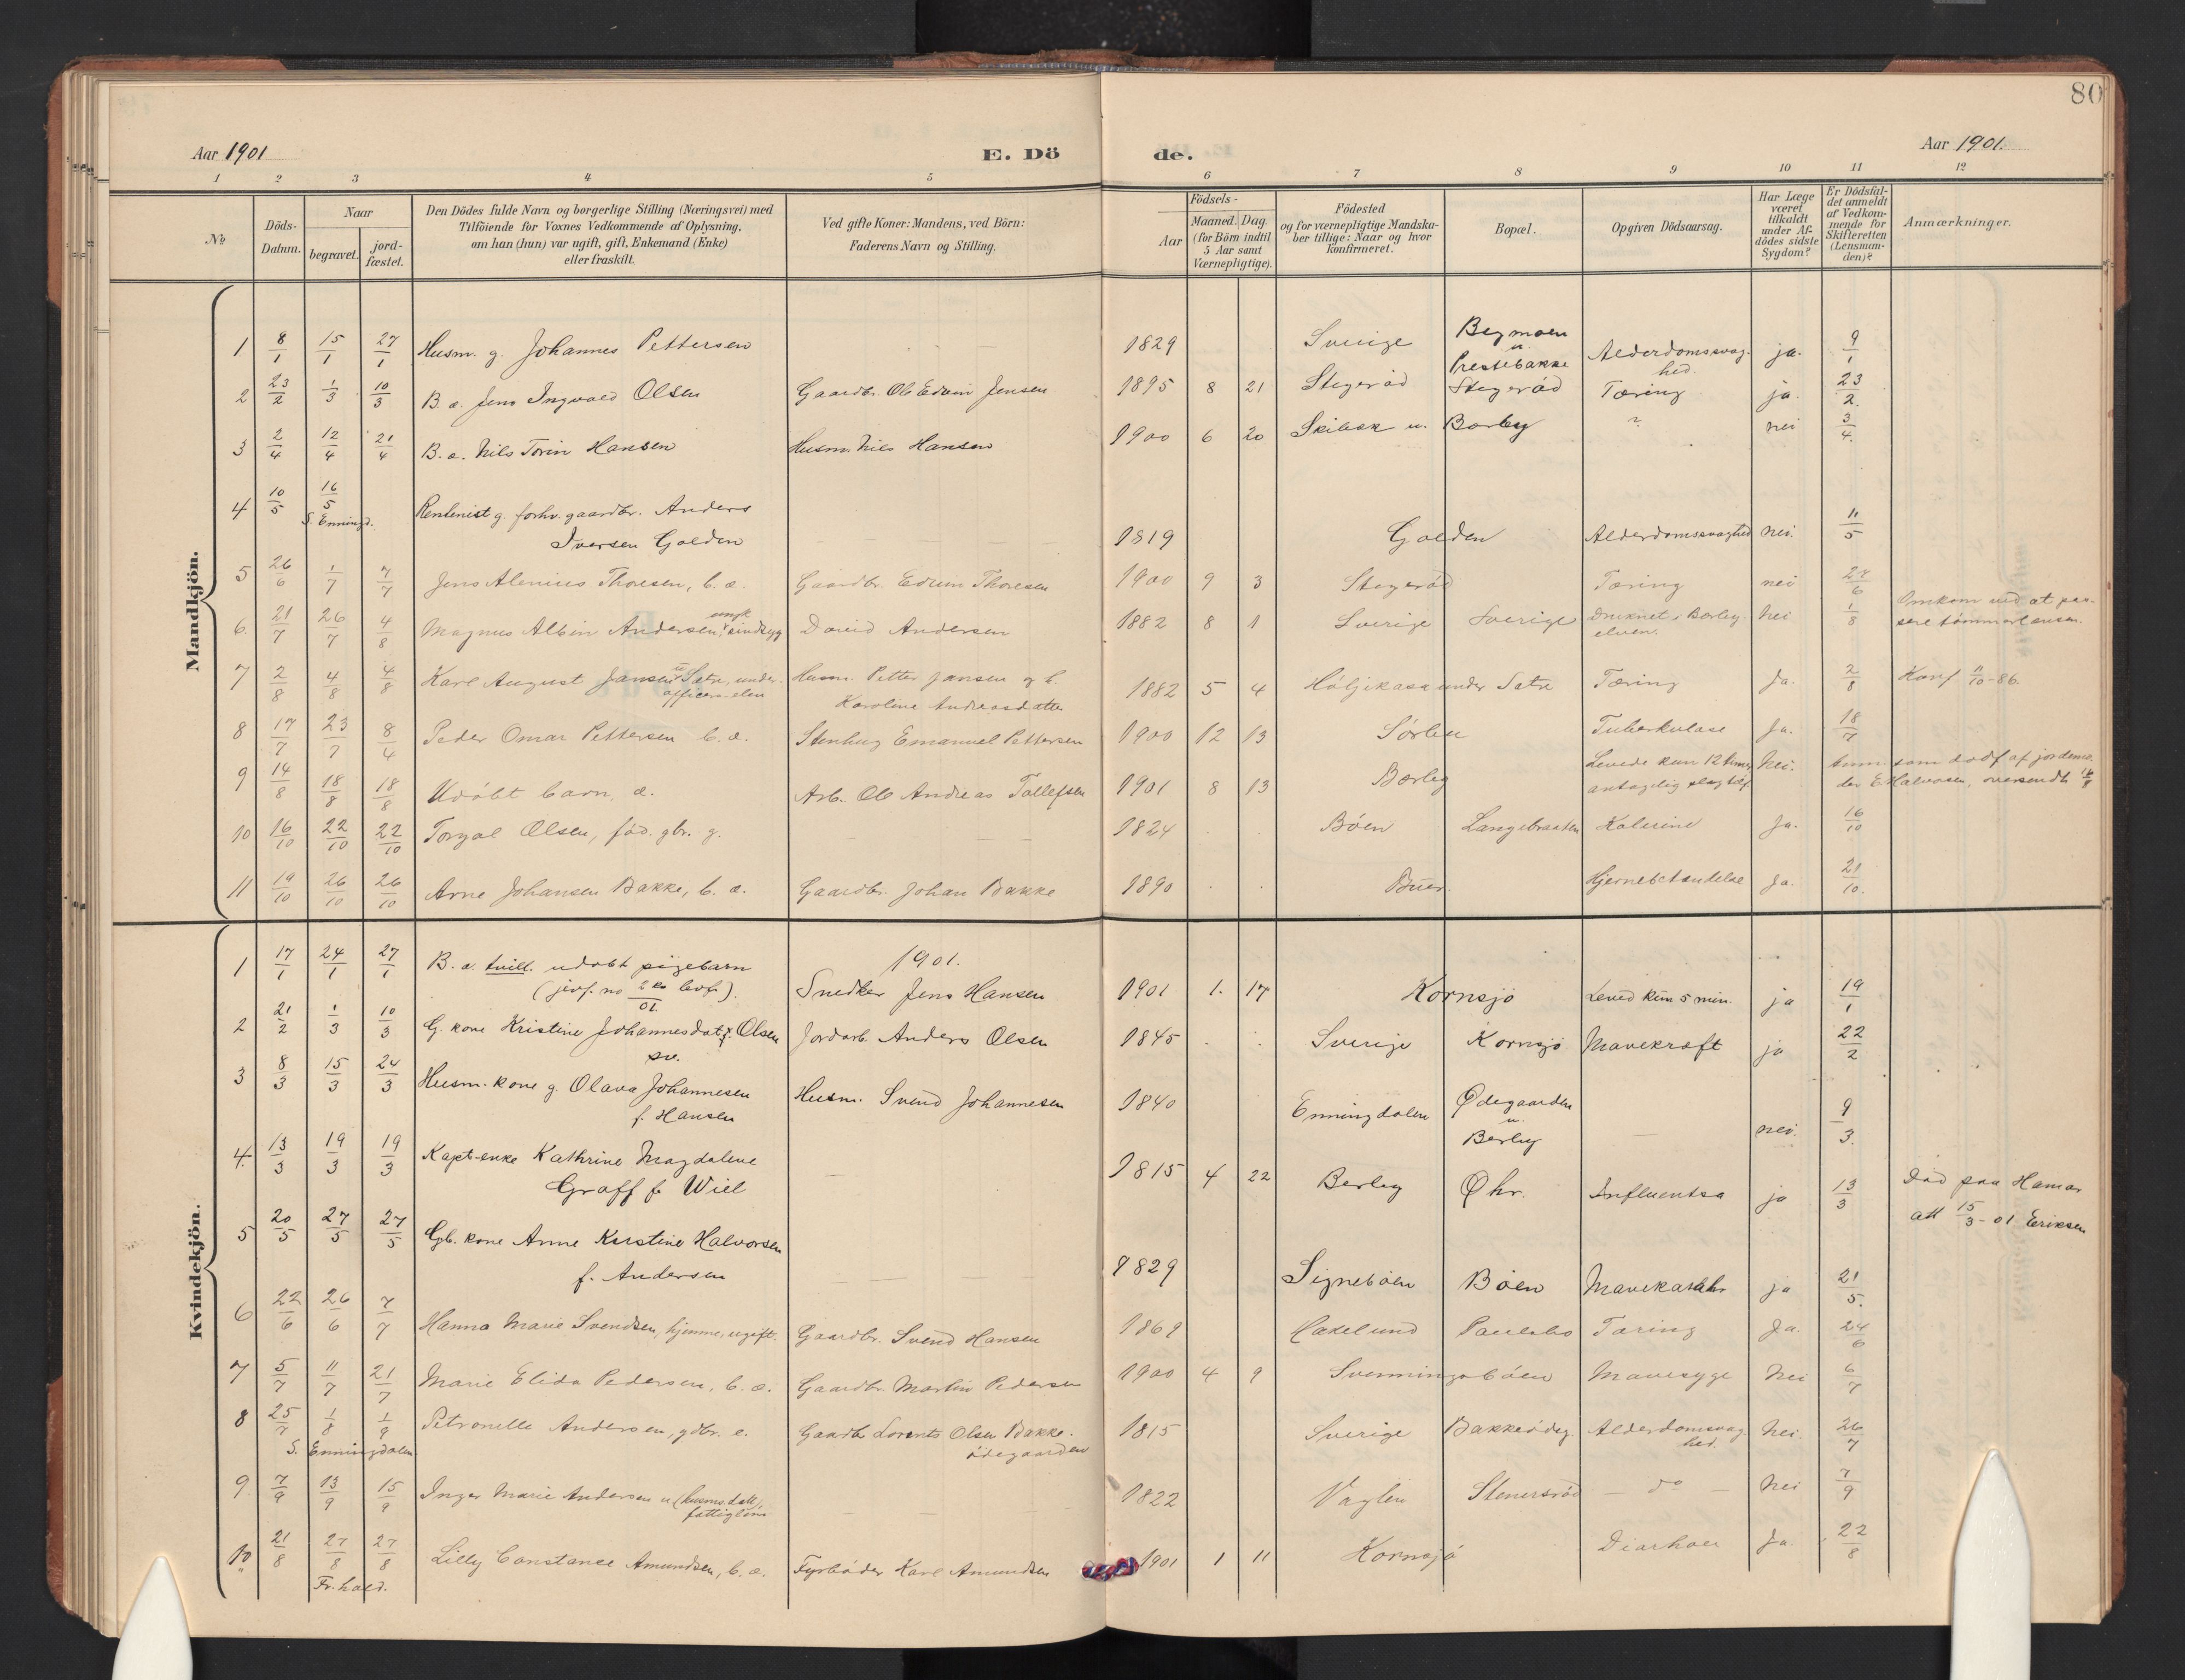 80
Aar 1901 E. Dö de. Aar 1901.
1 2 3 4 5 6 7 8 9 10 11 12
№ Döds-Datum. Naar begravet. jord-fæstet. Den Dödes fulde Navn og borgerlige Stilling (Næringsvei) med Tilföiende for Voxnes Vedkommende af Oplysning, om han (hun) var ugift, gift, Enkemand (Enke) eller fraskilt. Ved gifte Koner: Mandens, ved Börn: Faderens Navn og Stilling. Aar Födsels- Maaned. Dag. (for Börn indtil 5 Aar samt Værnepligtige). Födested og for værnepligtige Mandskaber tillige: Naar og hvor konfirmeret. Bopæl. Opgiven Dödsaarsag. Har Læge været tilkaldt under Afdödes sidste Sygdom? Er Dödsfaldet anmeldt af Vedkommende for Skifteretten (Lensmanden)? Anmærkninger.
Mandkjön.
1 8/1 15/1 27/1 Husm. g. Johannes Pettersen 1829 Sverige Begmoen u. Prestebakke Alderdomssvaghed. ja. 9/1
2 23/2 1/3 10/3 B. æ. Jens Ingvald Olsen Gaardbr. Ole Edvin Jensen 1895 8 21 Stegeröd Stegeröd Tæring ja. 23/2.
3 2/4 12/4 21/4 B. æ. Nils Torin Hansen Husm. Nils Hansen 1900 6 20 Skibæk u. Berby ? nei 3/4.
4 10/5 16/5 S. Enningd. Rentenist g. forhv. gaardbr. Anders
Iversen Golden 1819 Golden Alderdomssvaghed nei. 11/5
5 26/6 1/7 7/7 Jens Alenius Thoresen, b. æ. Gaardbr. Edvin Thoresen 1900 9 3 Stegeröd Tæring nei 27/6
6. 21/7 26/7 4/8 Magnus Albin Andersen, ungk. sindsyg David Andersen 1882 8 1 Sverige Sverige Druknet i Berby elven. Nei 1/8 Omkom ved at passere tömmerlensen.
7 2/8 4/8 4/8 Karl August Jansen u. Sætre, underofficerselev Husm. Petter Jansen og h. Karoline Andreasdatter 1882 5 4 Höljekasa under Sætre Tæring Ja. 2/8 Konf 11/10-86.
8 17/7 23/7 8/4 Peder Omar Pettersen b. æ. Stenhug Emanuel Pettersen 1900 12 13 Sørbu Tuberkulose Ja. 18/7
9 14/8 18/8 18/8 Udöbt barn, æ. Arb. Ole Andreas Tollefsen 1901 8 13 Berby Levede kun 12 timer, antagelig slagtilf. Nei. Anm. som dödf af jordemoder E. Halvorsen, oversendt 16/8
10 16/10 22/10 22/10 Torgal Olsen, föd. gbr. g. 1824 Böen Langebraaten Kolerine Ja. 16/10
11 19/10 26/10 26/10 Arne Johansen Bakke, b. æ. Gaardbr. Johan Bakke 1890 Buer. Hjernebetændelse Ja. 21/10.
Kvindekjön.
1 17/1 24/1 27/1 B. æ. tvill. udöbt pigebarn 1901.
(jevf. no 2 levf.) 01. Snedker Jens Hansen 1901 1. 17 Kornsjö Leved kun 5 min. ja 19/1
2 21/2 1/3 10/3 G. kone Kristine Johannesdat. f. Olsen Jordarb. Anders Olsen 1845 Sverige Kornsjö Mavekræft ja 22/2
3 8/3 15/3 24/3 Husm. kone g. Olava Johannesen
f. Hansen Husm. Svend Johannesen 1840 Enningdalen Ødegaarden u. Berby nei. 9/3.
4. 13/3 19/3 19/3 Kapt-enke Kathrine Magdalene
Graff f. Wiel 1815 4 22 Berby Øhr. Influentsa ja 13/3 Död paa Hamar
att 15/3-01 Eriksen
5 20/5 27/5 27/5 Gb. kone Anne Kirstine Halvorsen
f. Andersen 1829 Signebøen Böen Mavekatarh ja 21/5.
6 22/6 26/6 7/7 Hanna Marie Svendsen, hjemme, ugift. Gaardbr. Svend Hansen 1869 Hakelund Paulsbo Tæring Ja. 24/6
7 5/7 11/7 21/7 Marie Elida Pedersen, b. æ. Gaardbr. Martin Pedersen 1900 4 9 Svenningsböen Mavesyge Nei 6/7
8 25/7 1/8 1/9 S. Enningdalen Petronelle Andersen, gdbr. e. Gaardb. Lorents Olsen Bakke. ödegaarden 1815 Sverige Bakkeödeg. Alderdomssvaghed. Nei. 26/7
9. 7/9 13/9 15/9 Inger Marie Andersen u. (husms. datt), fattiglem 1822 Vaglen Stenersröd — do — Nei 7/9
10 21/8 27/8 27/8 Fr. hald. Lilly Constance Amundsen, b. æ. Fyrböder Karl Amundsen 1901 1 11 Kornsjö Diarhoea Ja. 22/8